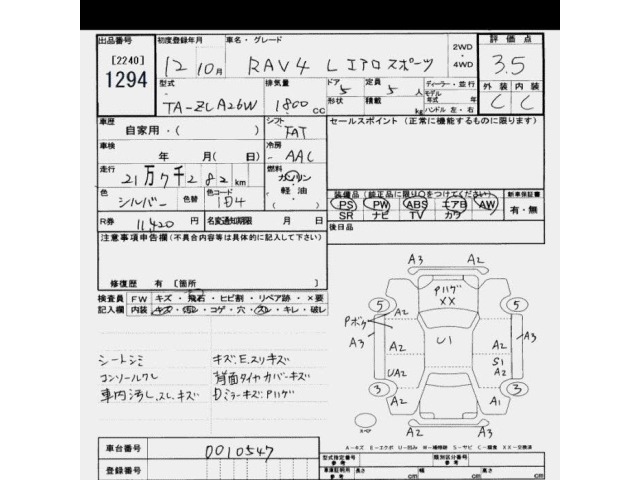 出品番号 初度登録年月 車名・グレード 2WD ・ 4WD 評価点
[2240] 12 10月 RAV4 L エアロスポーツ 3.5
1294 型式 排気量 ドア 定員 ディーラー・並行 外装 内装
TA-ZCA26W 1800 CC 5 5 人 モデル 年式 年 C C
形状 積載 kg ハンドル 左・右
車歴 シフト セールスポイント (正常に機能するものに限ります)
自家用・( ) FAT
車検 冷房
年 月(日) AAC
走行 燃料
21万7千282 km ガソリン
色 色替 色コード 軽・油 装備品(純正品に限り○をつけてください) 新車保証書
シルバー 1D4 PS PW ABS エアB AW 有・無
SR ナビ TV カワ
R券 11,420 円 名変通知期限 月 日 後日品
注意事項申告欄(不具合内容等は具体的に記入して下さい)
修復歴 有 [箇所 ]
検査員 FW キズ・飛石・ヒビ割・リペア跡・×要
記入欄 内装 キズ・汚レ・コゲ・穴・スレ・キレ・破レ
シートシミ キズ、E、スリキズ
コンソールワレ 背面タイヤカバーキズ
車内汚レ、スレ、キズ DミラーキズP.ハゲ
A3 A2
Pハゲ
XX
5 5
Pボケ A2 A2
A3 A3
A2 U1 S1
UA2 A2
3 3
A2 A1
A3 A2
A-キズ E-エクボ U-凹み W-補修跡 S-サビ C-腐食 XX-交換済
車台番号 0010547 型式指定番号 参考 類別区分番号 参考
登録番号 車庫証明用 参考 長さ cm 幅 cm 高さ cm